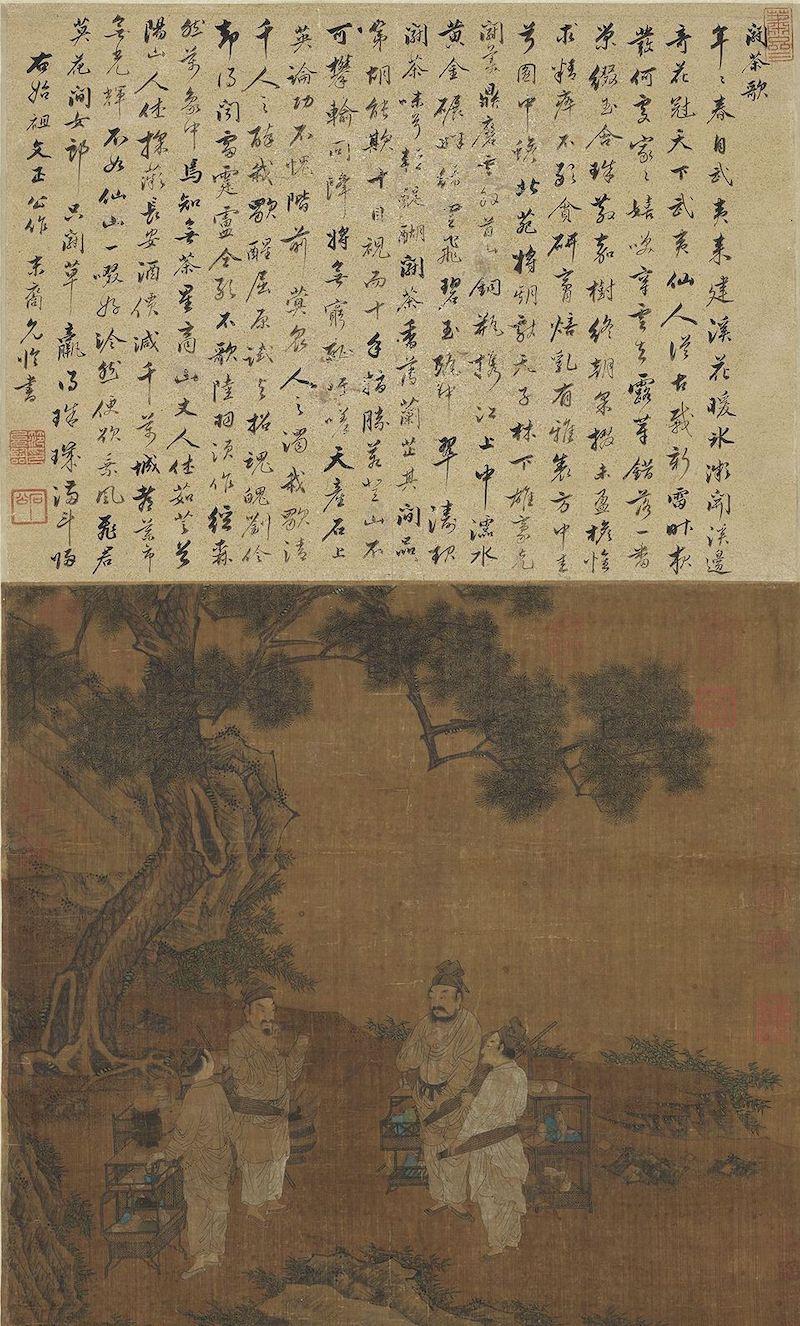 鬪茶歌
年〻春自武夷来建溪花暖氷漸開溪邊
奇花冠天下武夷仙人從古栽新雷昨夜
發何處家〻嬉唉穿雲去露芽錯落一番
榮綴玉含珠散嘉樹終朝采掇未盈襜惟
求精粹不敢貪研膏焙乳有雅製方中圭
兮圓中蟾北苑將期献天子林下雄豪先
鬪美鼎磨雲外首山銅瓶携江上中濡水
黄金碾畔緑塵飛碧玉甌中翠濤起
鬪茶味兮輕醍醐鬪茶香薄蘭芷其間品
第胡能欺十目視而十手指勝若登山不
可攀輸同降將無窮耻吁嗟天産石上
英論功不愧階前蓂衆人之濁我歌清
千人之醉我歌醒屈原試与招魂魄劉伶
却得聞雷霆盧仝敢不歌陸羽須作經森
然萬象中焉知無茶星商山丈人休茹芝首
陽山人休採薇長安酒價減千萬城都藥市
無光輝不如仙山一啜好泠然便欲乘風飛君
莫花間女郎只鬪草贏得珠璣滿斗歸
右始祖文正公作 末裔允臨書